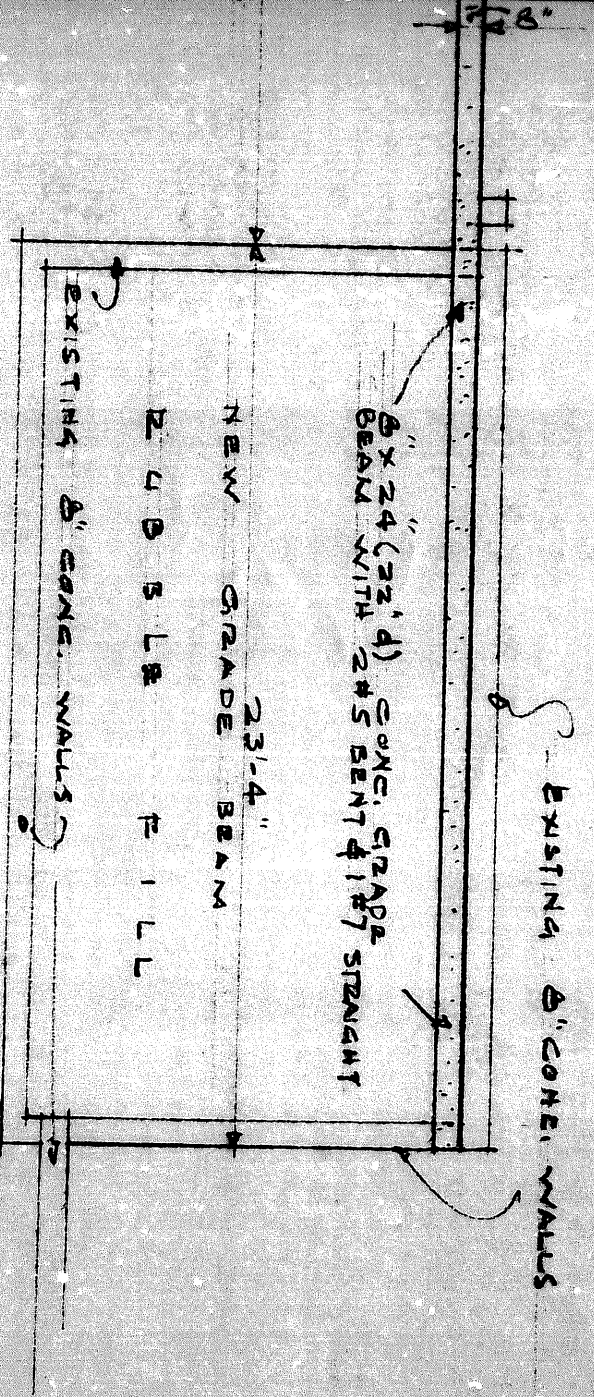 8"
EXISTING 8" CONC. WALLS
8" X 24" (22" d) CONC. GRADE
BEAM WITH 2 #5 BENT & 1 #7 STRAIGHT
23'-4"
NEW GRADE BEAM
RUBBLE FILL
EXISTING 8" CONC. WALLS